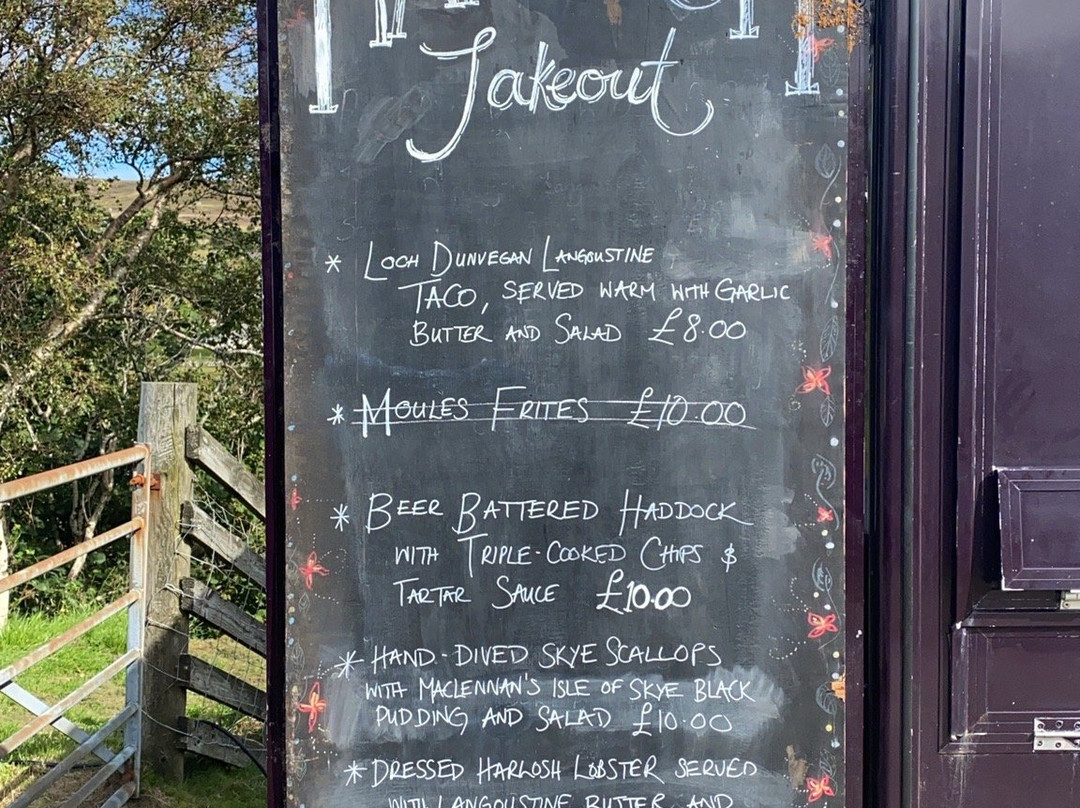 Takeout
* LOCH DUNVEGAN LANGOUSTINE
TACO, SERVED WARM WITH GARLIC
BUTTER AND SALAD £8.00
* MOULES FRITES £10.00
* BEER BATTERED HADDOCK
WITH TRIPLE-COOKED CHIPS &
TARTAR SAUCE £10.00
* HAND-DIVED SKYE SCALLOPS
WITH MACLENNAN'S ISLE OF SKYE BLACK
PUDDING AND SALAD £10.00
* DRESSED HARLOSH LOBSTER SERVED
WITH LANGOUSTINE BUTTER AND